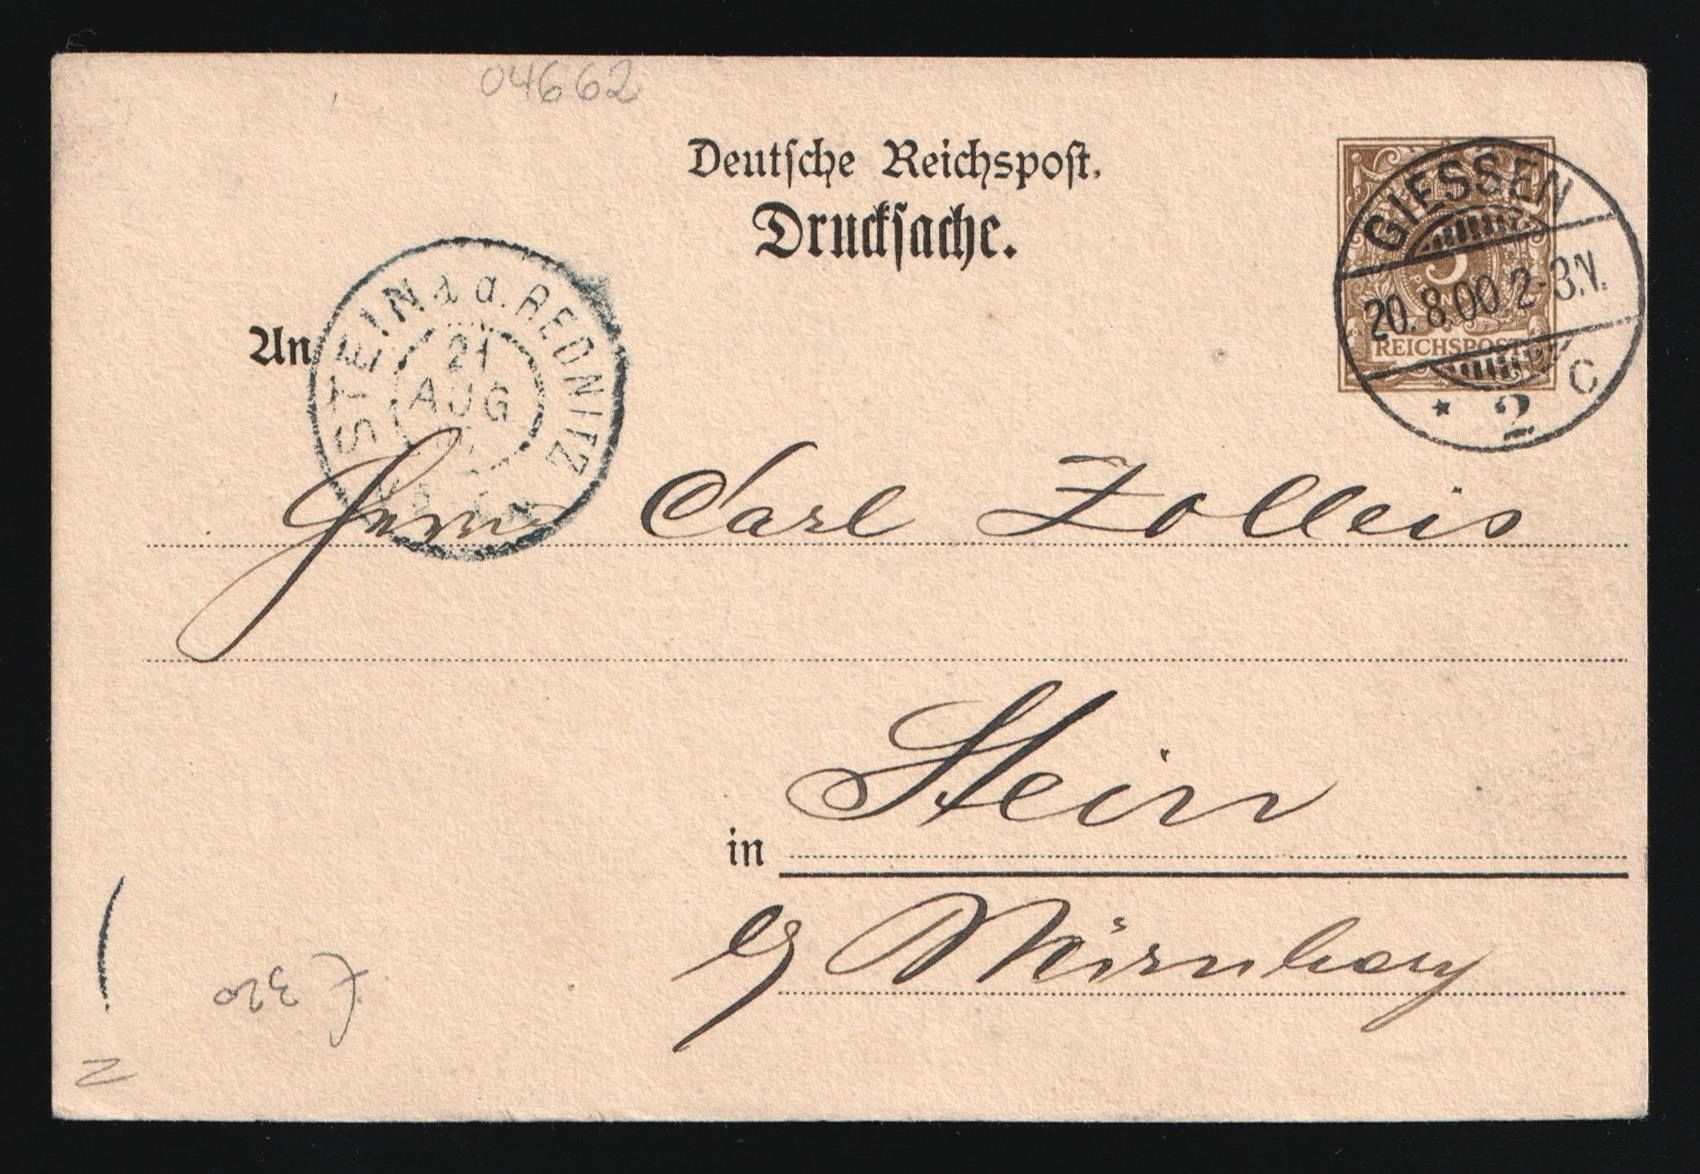 04662
Deutsche Reichspost.
Drucksache.
GIESSEN
3
20.8.00.2-3.V.
REICHSPOST
* 2 C
STEIN a. d. REDNITZ
21
AUG
An
Herrn Carl Zolleis
Stein
in
b/ Nürnberg
320